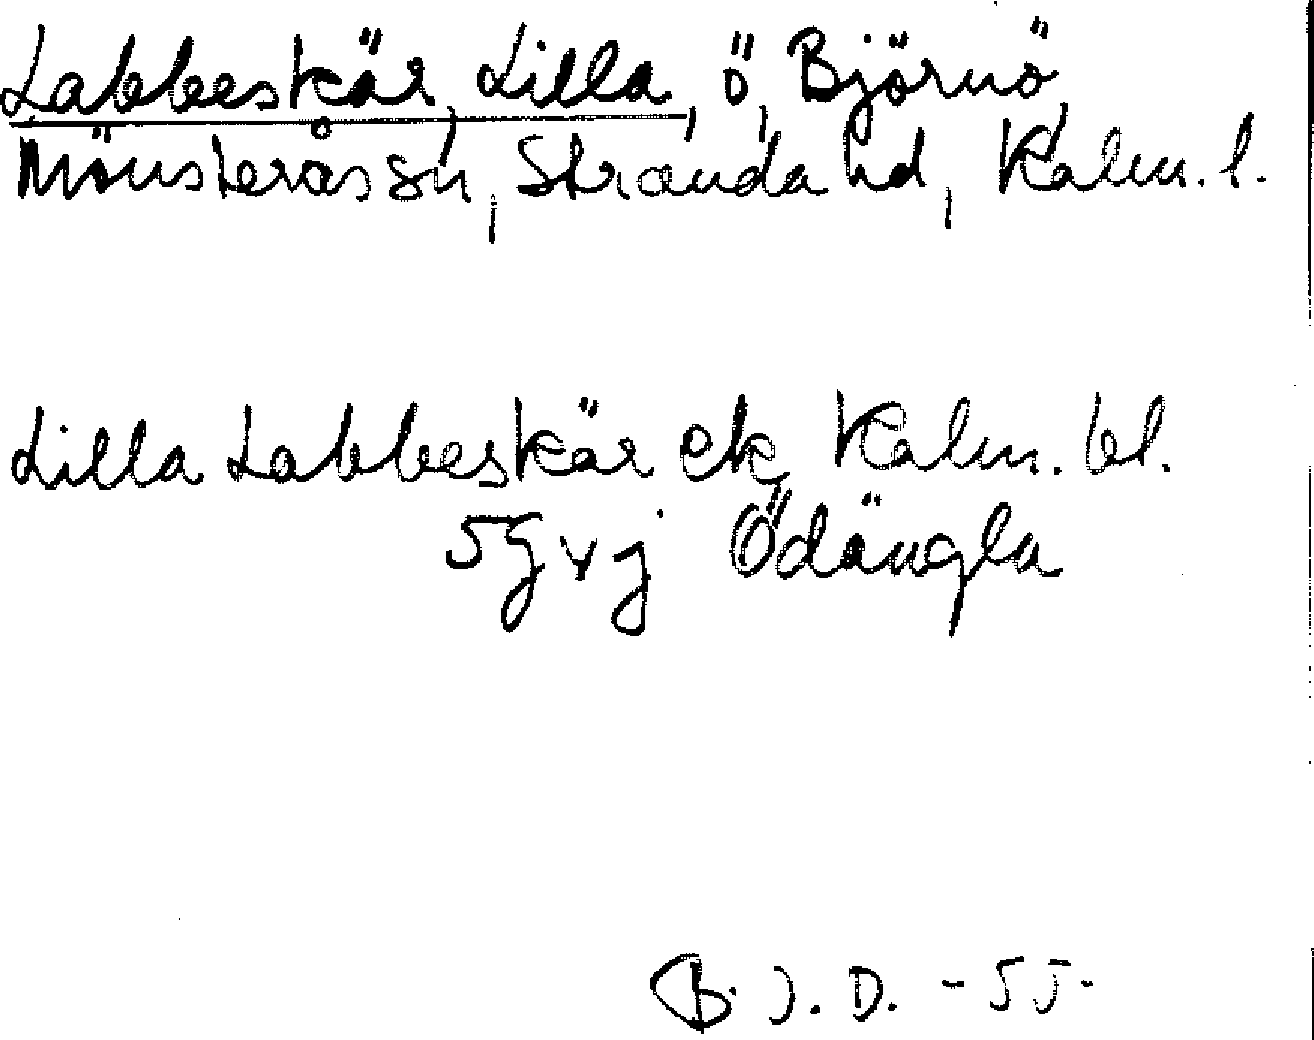 Labbeskär, Lilla, ö, Björnö,
Mönsterås sn, Stranda hd, Kalm. l.
Lilla Labbeskär ek, Kalm. bl.
5g v j Ödängla
B. J. D. - 55-